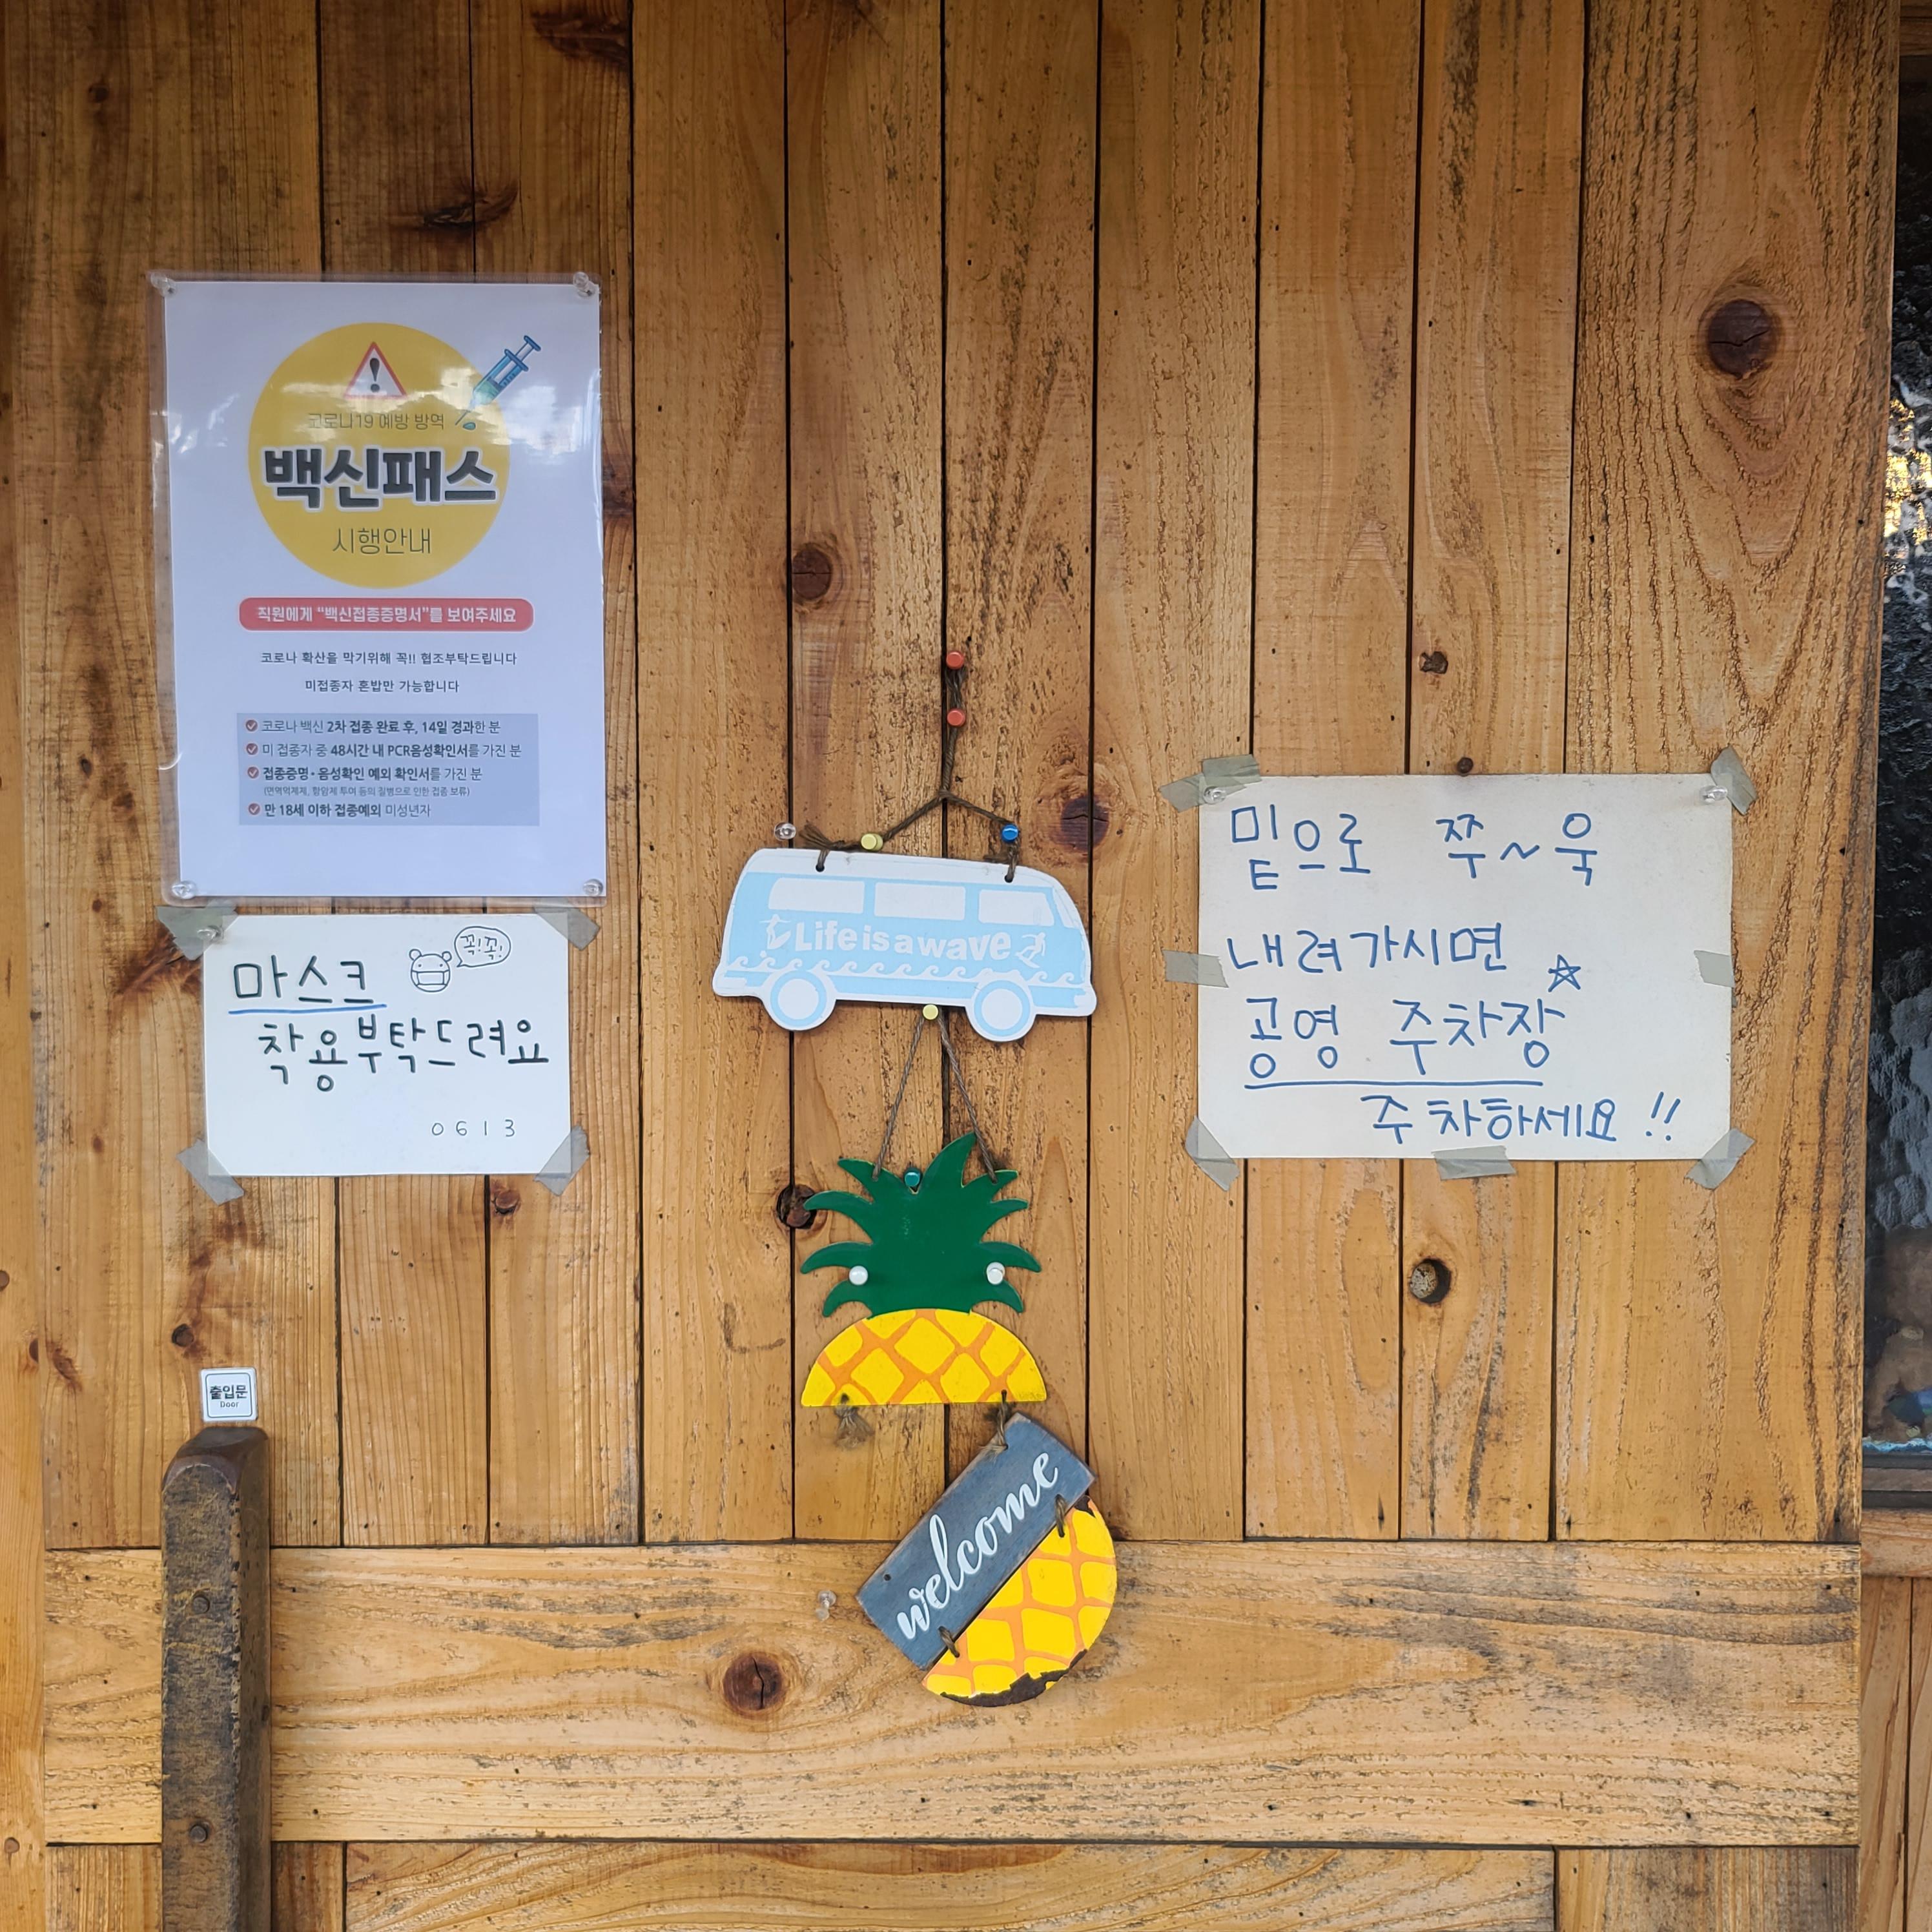 코로나19 예방 방역
백신패스
시행안내
직원에게 "백신접종증명서"를 보여주세요
코로나 확산을 막기위해 꼭!! 협조부탁드립니다
미접종자 혼밥만 가능합니다
코로나 백신 2차 접종 완료 후, 14일 경과한 분
미 접종자 중 48시간 내 PCR음성확인서를 가진 분
접종증명·음성확인 예외 확인서를 가진 분
(면역억제제, 항암제 투여 등의 질병으로 인한 접종 보류)
만 18세 이하 접종예외 미성년자
꼭!꼭!
마스크
착용부탁드려요
0613
출입문
Door
Life is a wave
welcome
밑으로 쭈~욱
내려가시면
공영 주차장
주차하세요!!